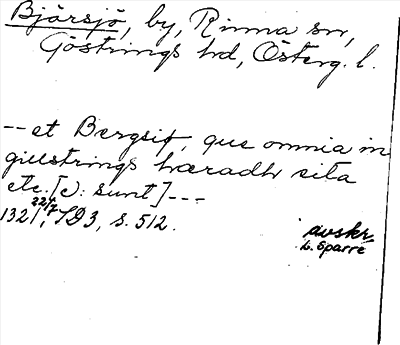 Bjärsjö, by, Rinna sn,
Göstrings hd, Österg. l.
-- et Bergsiø, que omnia in
giusstrings hæradh sita
etc. [ɔ: sunt] ---
1321 22/7, SD3, s. 512.
avskr.
L. Sparre